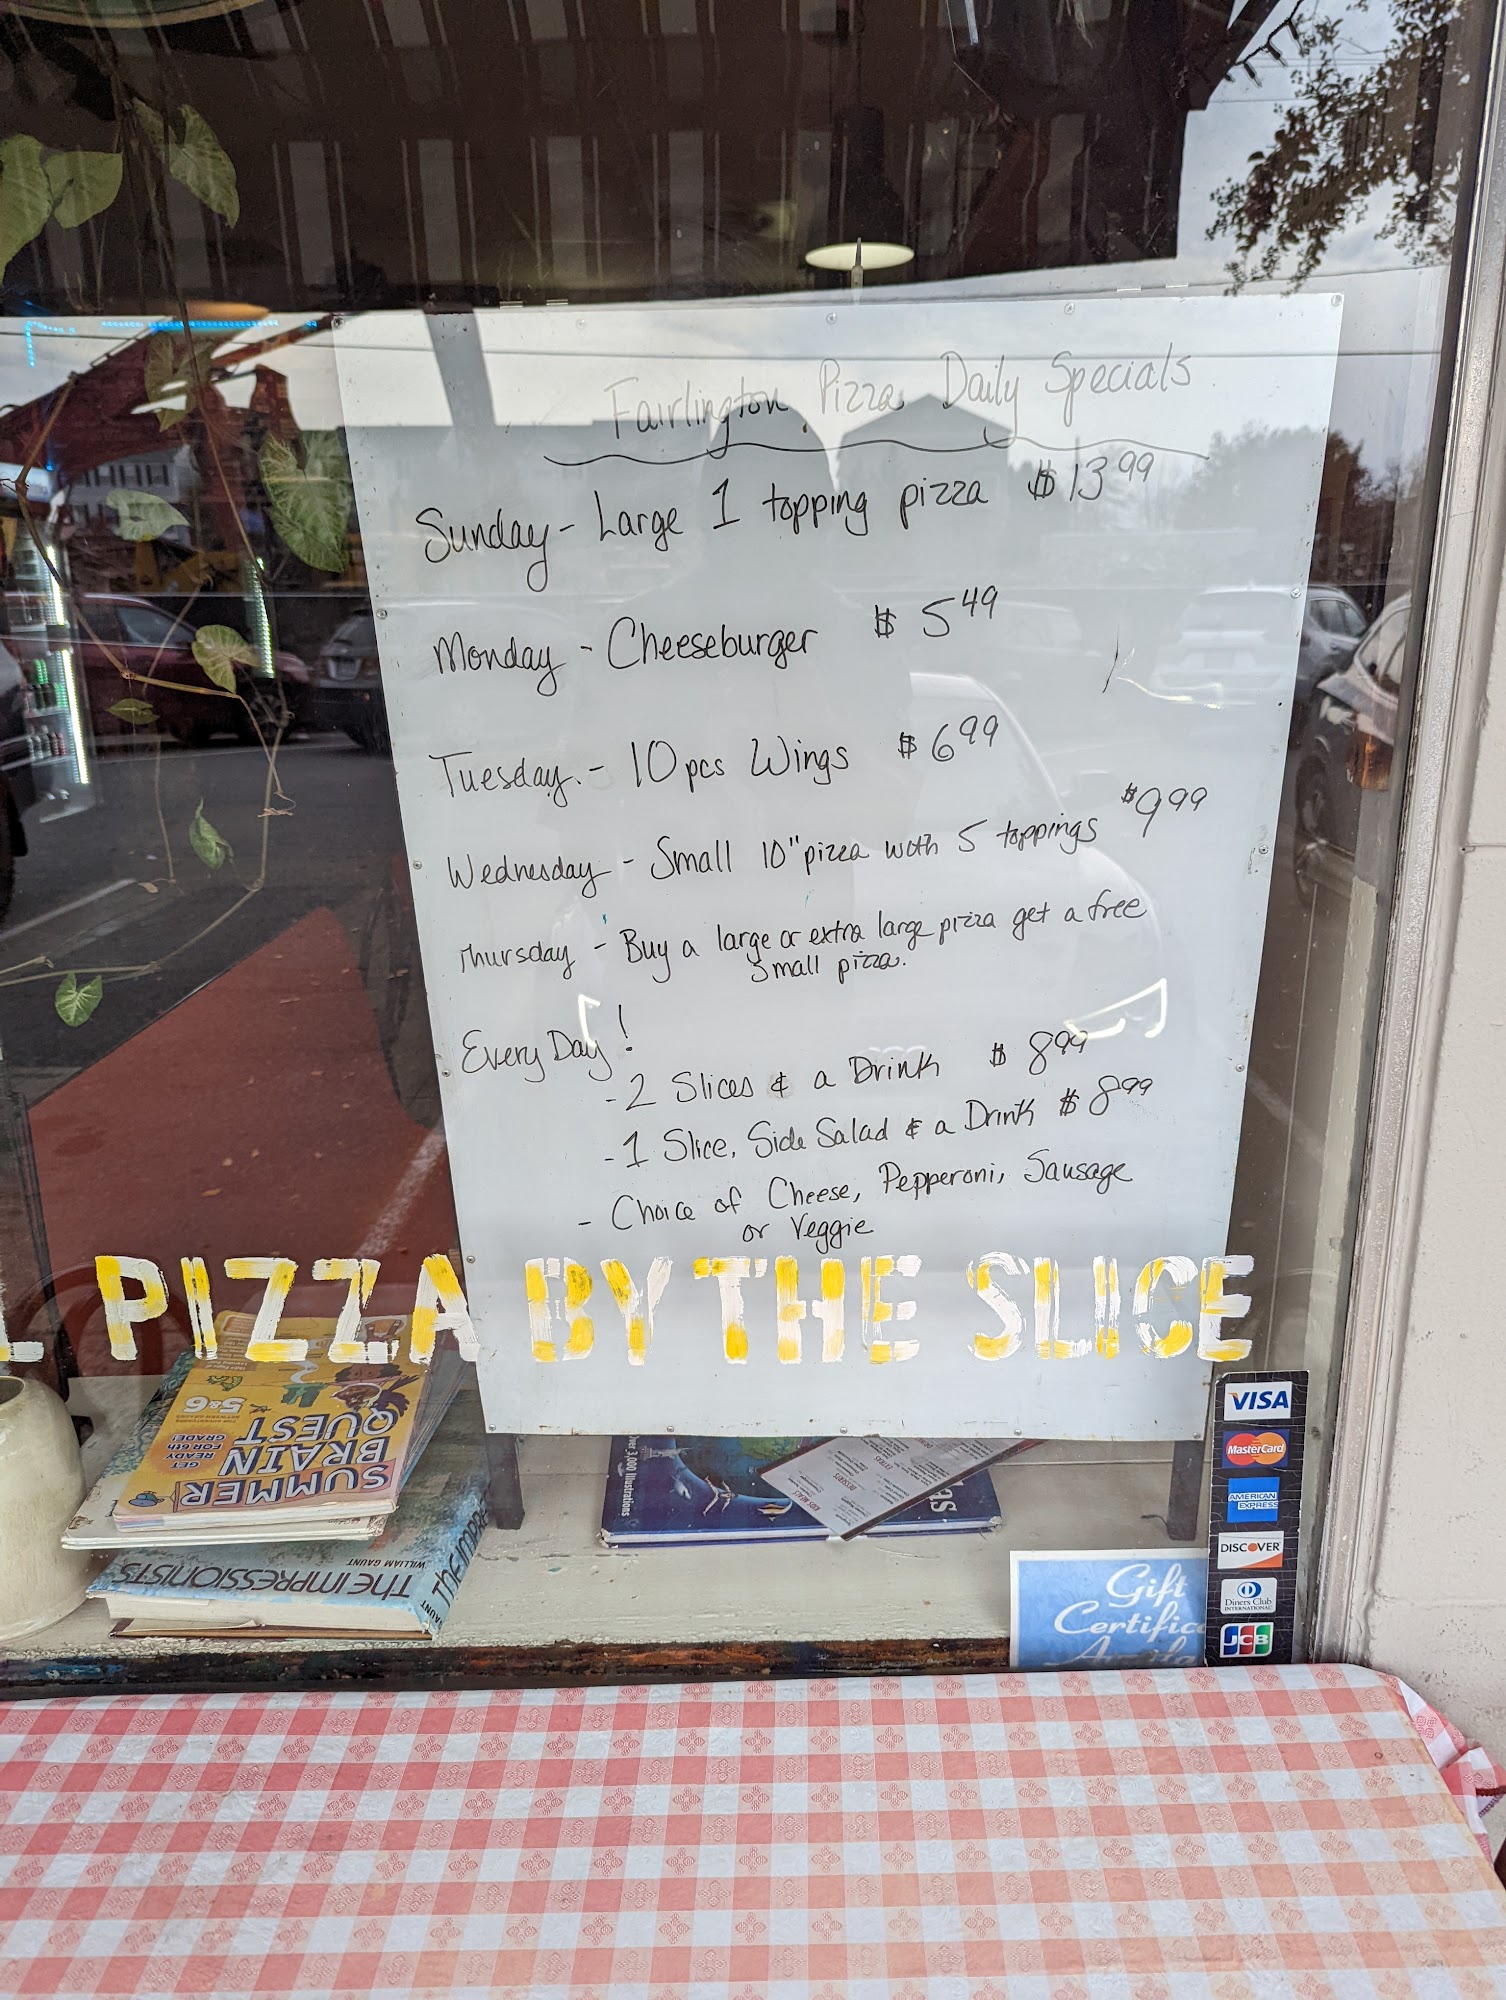 Fairlington Pizza Daily Specials
Sunday - Large 1 topping pizza $13.99
Monday - Cheeseburger $5.49
Tuesday. - 10 pcs Wings $6.99
Wednesday - Small 10" pizza with 5 toppings $9.99
Thursday - Buy a large or extra large pizza get a free
small pizza.
Every Day!
- 2 Slices & a Drink $8.99
- 1 Slice, Side Salad & a Drink $8.99
- Choice of Cheese, Pepperoni, Sausage
or Veggie
PIZZA BY THE SLICE
SUMMER
BRAIN
QUEST
GET
READY
FOR 6th
GRADE!
5&6
THE IMPRESSIONISTS
WILLIAM GAUNT
THE IMPRE
AUNT
Over 3,000 Illustrations
as
DESSERTS
EXTRAS
KIDS MEALS
VISA
MasterCard
AMERICAN
EXPRESS
DISCOVER
Diners Club
INTERNATIONAL
JCB
Gift
Certific